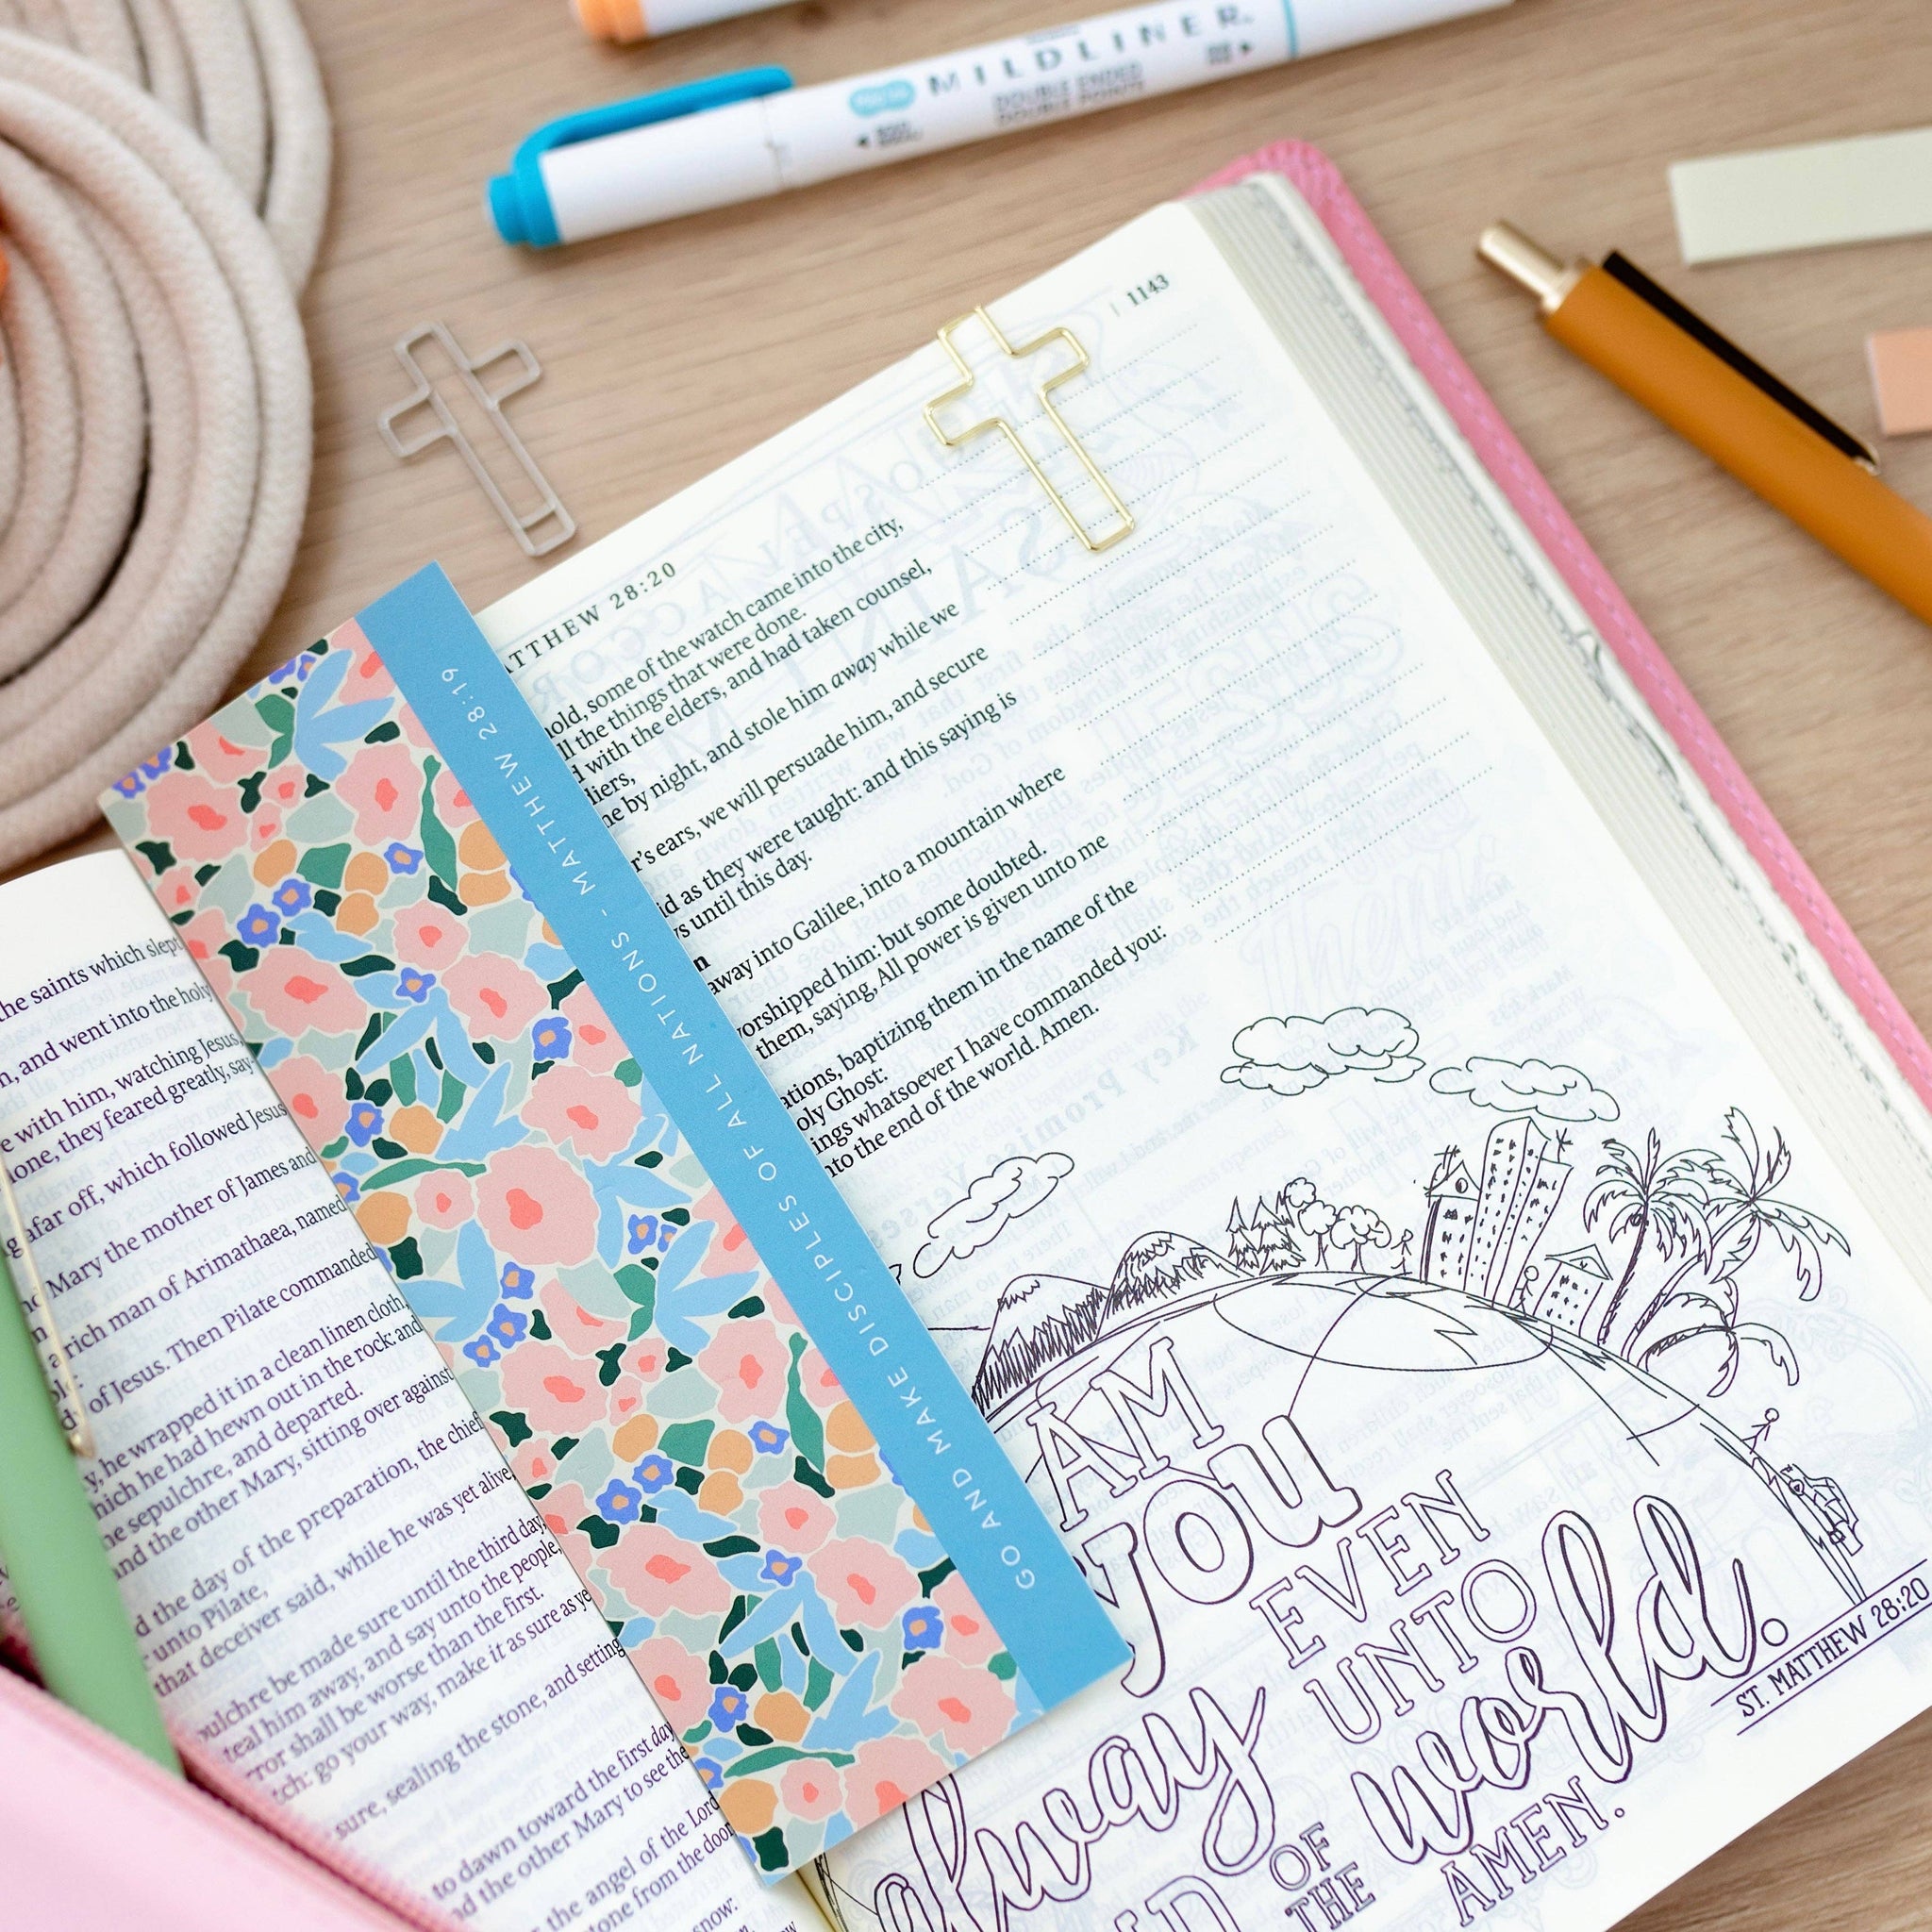 MILDLINER.
DOUBLE ENDED
DOUBLE POINTS
1143
ATTHEW 28:20
old, some of the watch came into the city,
ll the things that were done.
d with the elders, and had taken counsel,
liers,
ne by night, and stole him away while we
r's ears, we will persuade him, and secure
id as they were taught: and this saying is
ys until this day.
n
away into Galilee, into a mountain where
vorshipped him: but some doubted.
them, saying, All power is given unto me
ations, baptizing them in the name of the
oly Ghost:
ings whatsoever I have commanded you:
nto the end of the world. Amen.
GO AND MAKE DISCIPLES OF ALL NATIONS - MATTHEW 28:19
he saints which slept
n, and went into the holy
e with him, watching Jesus,
lone, they feared greatly, say-
afar off, which followed Jesus
Mary the mother of James and
rich man of Arimathaea, named
of Jesus. Then Pilate commanded
y, he wrapped it in a clean linen cloth,
hich he had hewn out in the rock: and
he sepulchre, and departed.
and the other Mary, sitting over against
d the day of the preparation, the chief
unto Pilate,
that deceiver said, while he was yet alive,
pulchre be made sure until the third day,
teal him away, and say unto the people,
rror shall be worse than the first.
tch: go your way, make it as sure as ye
sure, sealing the stone, and setting
to dawn toward the first day
nd the other Mary to see the
the angel of the Lord
tone from the door
snow:
AM
YOU
always
EVEN
UNTO
OF
THE
world.
AMEN.
ST. MATTHEW 28:20